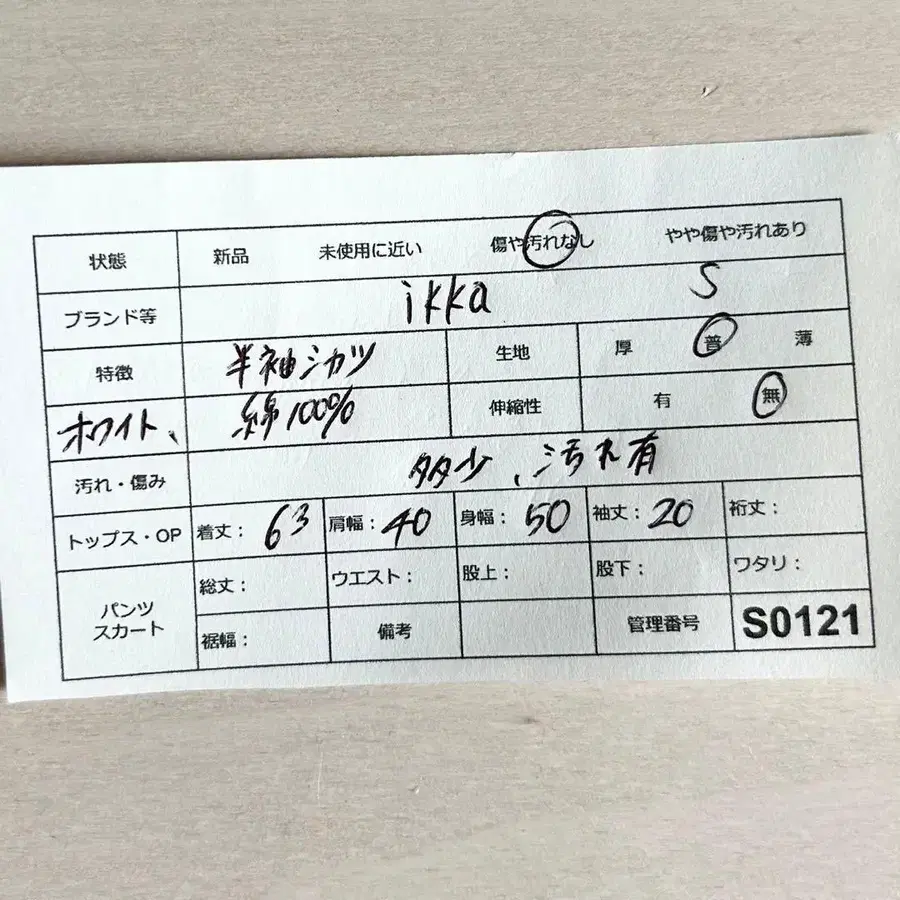 状態 新品 未使用に近い 傷や汚れなし やや傷や汚れあり
ブランド等 ikka S
特徴 半袖シカツ 生地 厚 普 薄
ホワイト、 綿100% 伸縮性 有 無
汚れ・傷み 多少、汚れ有
トップス・OP 着丈: 63 肩幅: 40 身幅: 50 袖丈: 20 裄丈:
パンツ スカート 総丈: ウエスト: 股上: 股下: ワタリ:
裾幅: 備考 管理番号 S0121